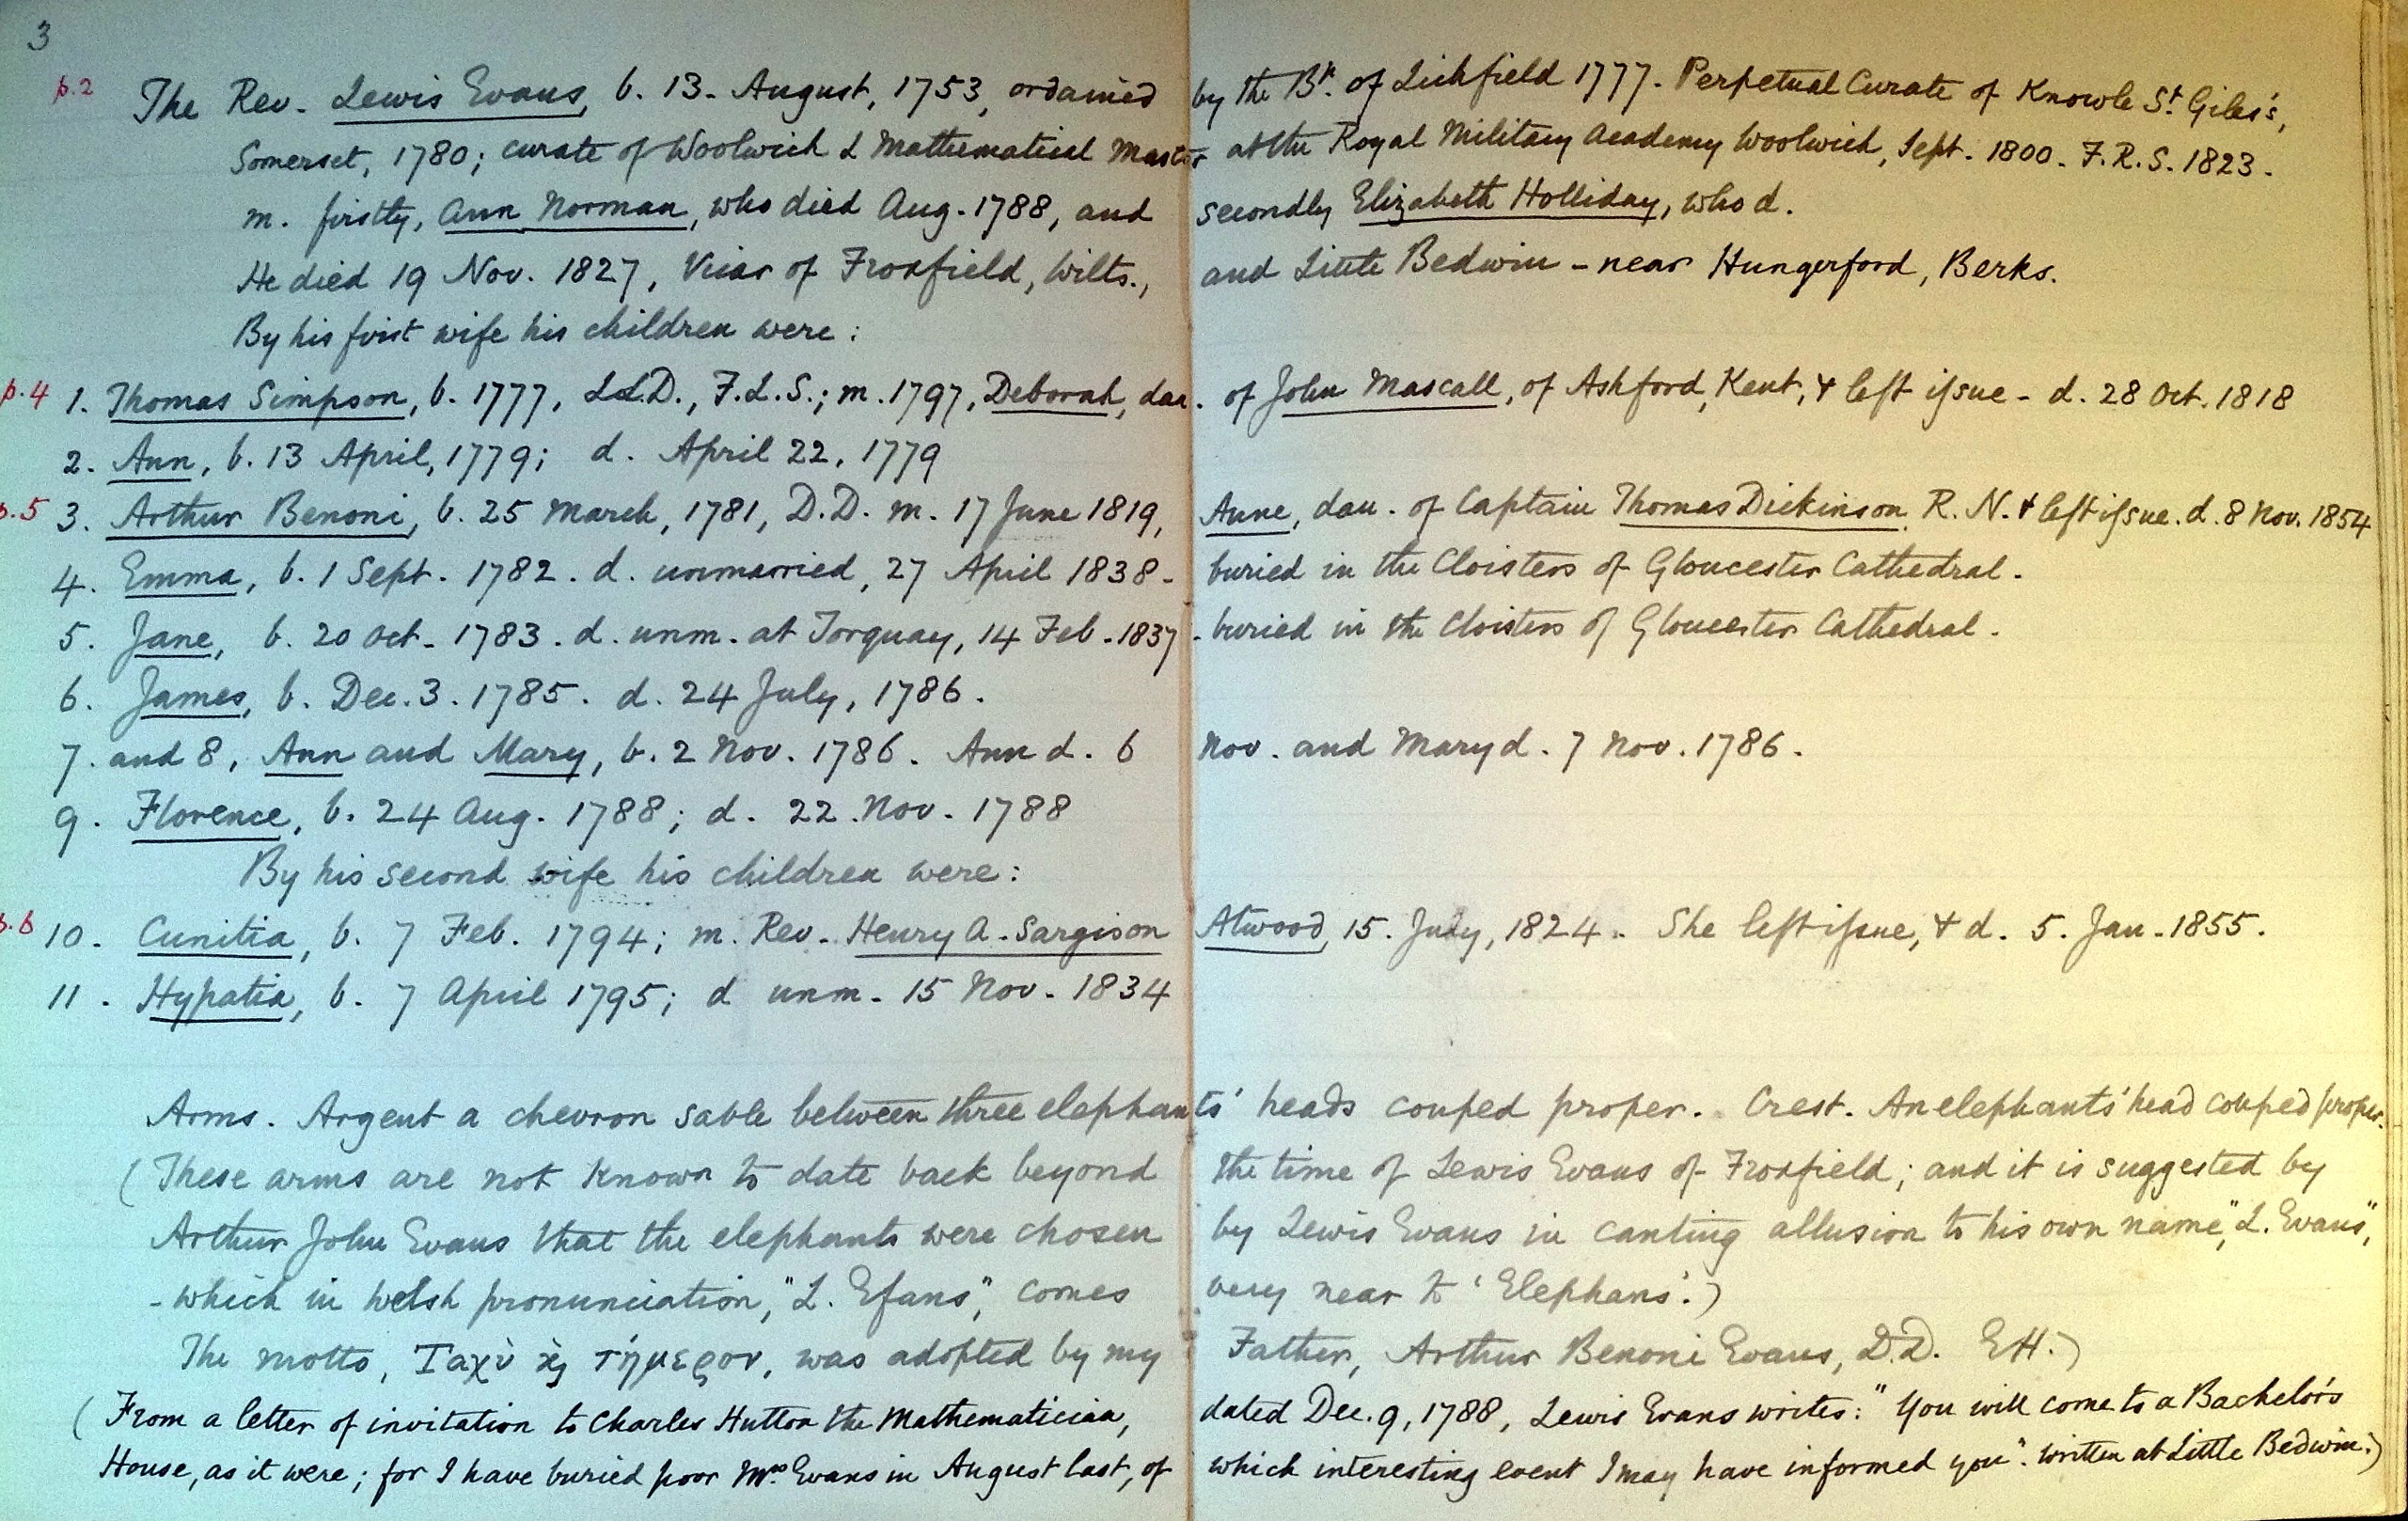 3
p.2 The Rev. Lewis Evans, b. 13. August, 1753, ordained by the Bp. of Lichfield 1777. Perpetual Curate of Knowle St. Giles's,
Somerset, 1780; curate of Woolwich & Mathematical Master at the Royal Military Academy Woolwich, Sept. 1800. F.R.S. 1823.
m. firstly, Ann Norman, who died Aug. 1788, and secondly Elizabeth Holliday, who d.
He died 19 Nov. 1827, Vicar of Froxfield, Wilts., and Little Bedwin - near Hungerford, Berks.
By his first wife his children were:
p.4 1. Thomas Simpson, b. 1777, LL.D., F.L.S.; m. 1797, Deborah, dau. of John Mascall, of Ashford, Kent, & left issue - d. 28 Oct. 1818
2. Ann, b. 13 April, 1779; d. April 22, 1779
p.5 3. Arthur Benoni, b. 25 March, 1781, D.D. m. 17 June 1819, Anne, dau. of Captain Thomas Dickinson R.N. & left issue. d. 8 Nov. 1854
4. Emma, b. 1 Sept. 1782. d. unmarried, 27 April 1838 - buried in the Cloisters of Gloucester Cathedral.
5. Jane, b. 20 Oct. 1783. d. unm. at Torquay, 14 Feb. 1837 - buried in the Cloisters of Gloucester Cathedral.
6. James, b. Dec. 3. 1785. d. 24 July, 1786.
7. and 8, Ann and Mary, b. 2 Nov. 1786. Ann d. 6 Nov. and Mary d. 7 Nov. 1786.
9. Florence, b. 24 Aug. 1788; d. 22. Nov. 1788
By his second wife his children were:
p.6 10. Cunitia, b. 7 Feb. 1794; m. Rev. Henry A. Sargison Atwood, 15. July, 1824. She left issue, & d. 5. Jan. 1855.
11. Hypatia, b. 7 April 1795; d unm. 15 Nov. 1834
Arms. Argent a chevron sable between three elephants' heads couped proper. Crest. An elephants' head couped proper.
(These arms are not known to date back beyond the time of Lewis Evans of Froxfield; and it is suggested by
Arthur John Evans that the elephants were chosen by Lewis Evans in canting allusion to his own name, "L. Evans",
- which in Welsh pronunciation, "L. Efans", comes very near to 'Elephans'.)
The motto, Ταχὺ ϗ τήμερον, was adopted by my Father, Arthur Benoni Evans, D.D. EH.)
(From a letter of invitation to Charles Hutton the Mathematician, dated Dec. 9, 1788, Lewis Evans writes: "You will come to a Bachelor's
House, as it were; for I have buried poor Mrs. Evans in August last, of which interesting event I may have informed you". Written at Little Bedwin.)